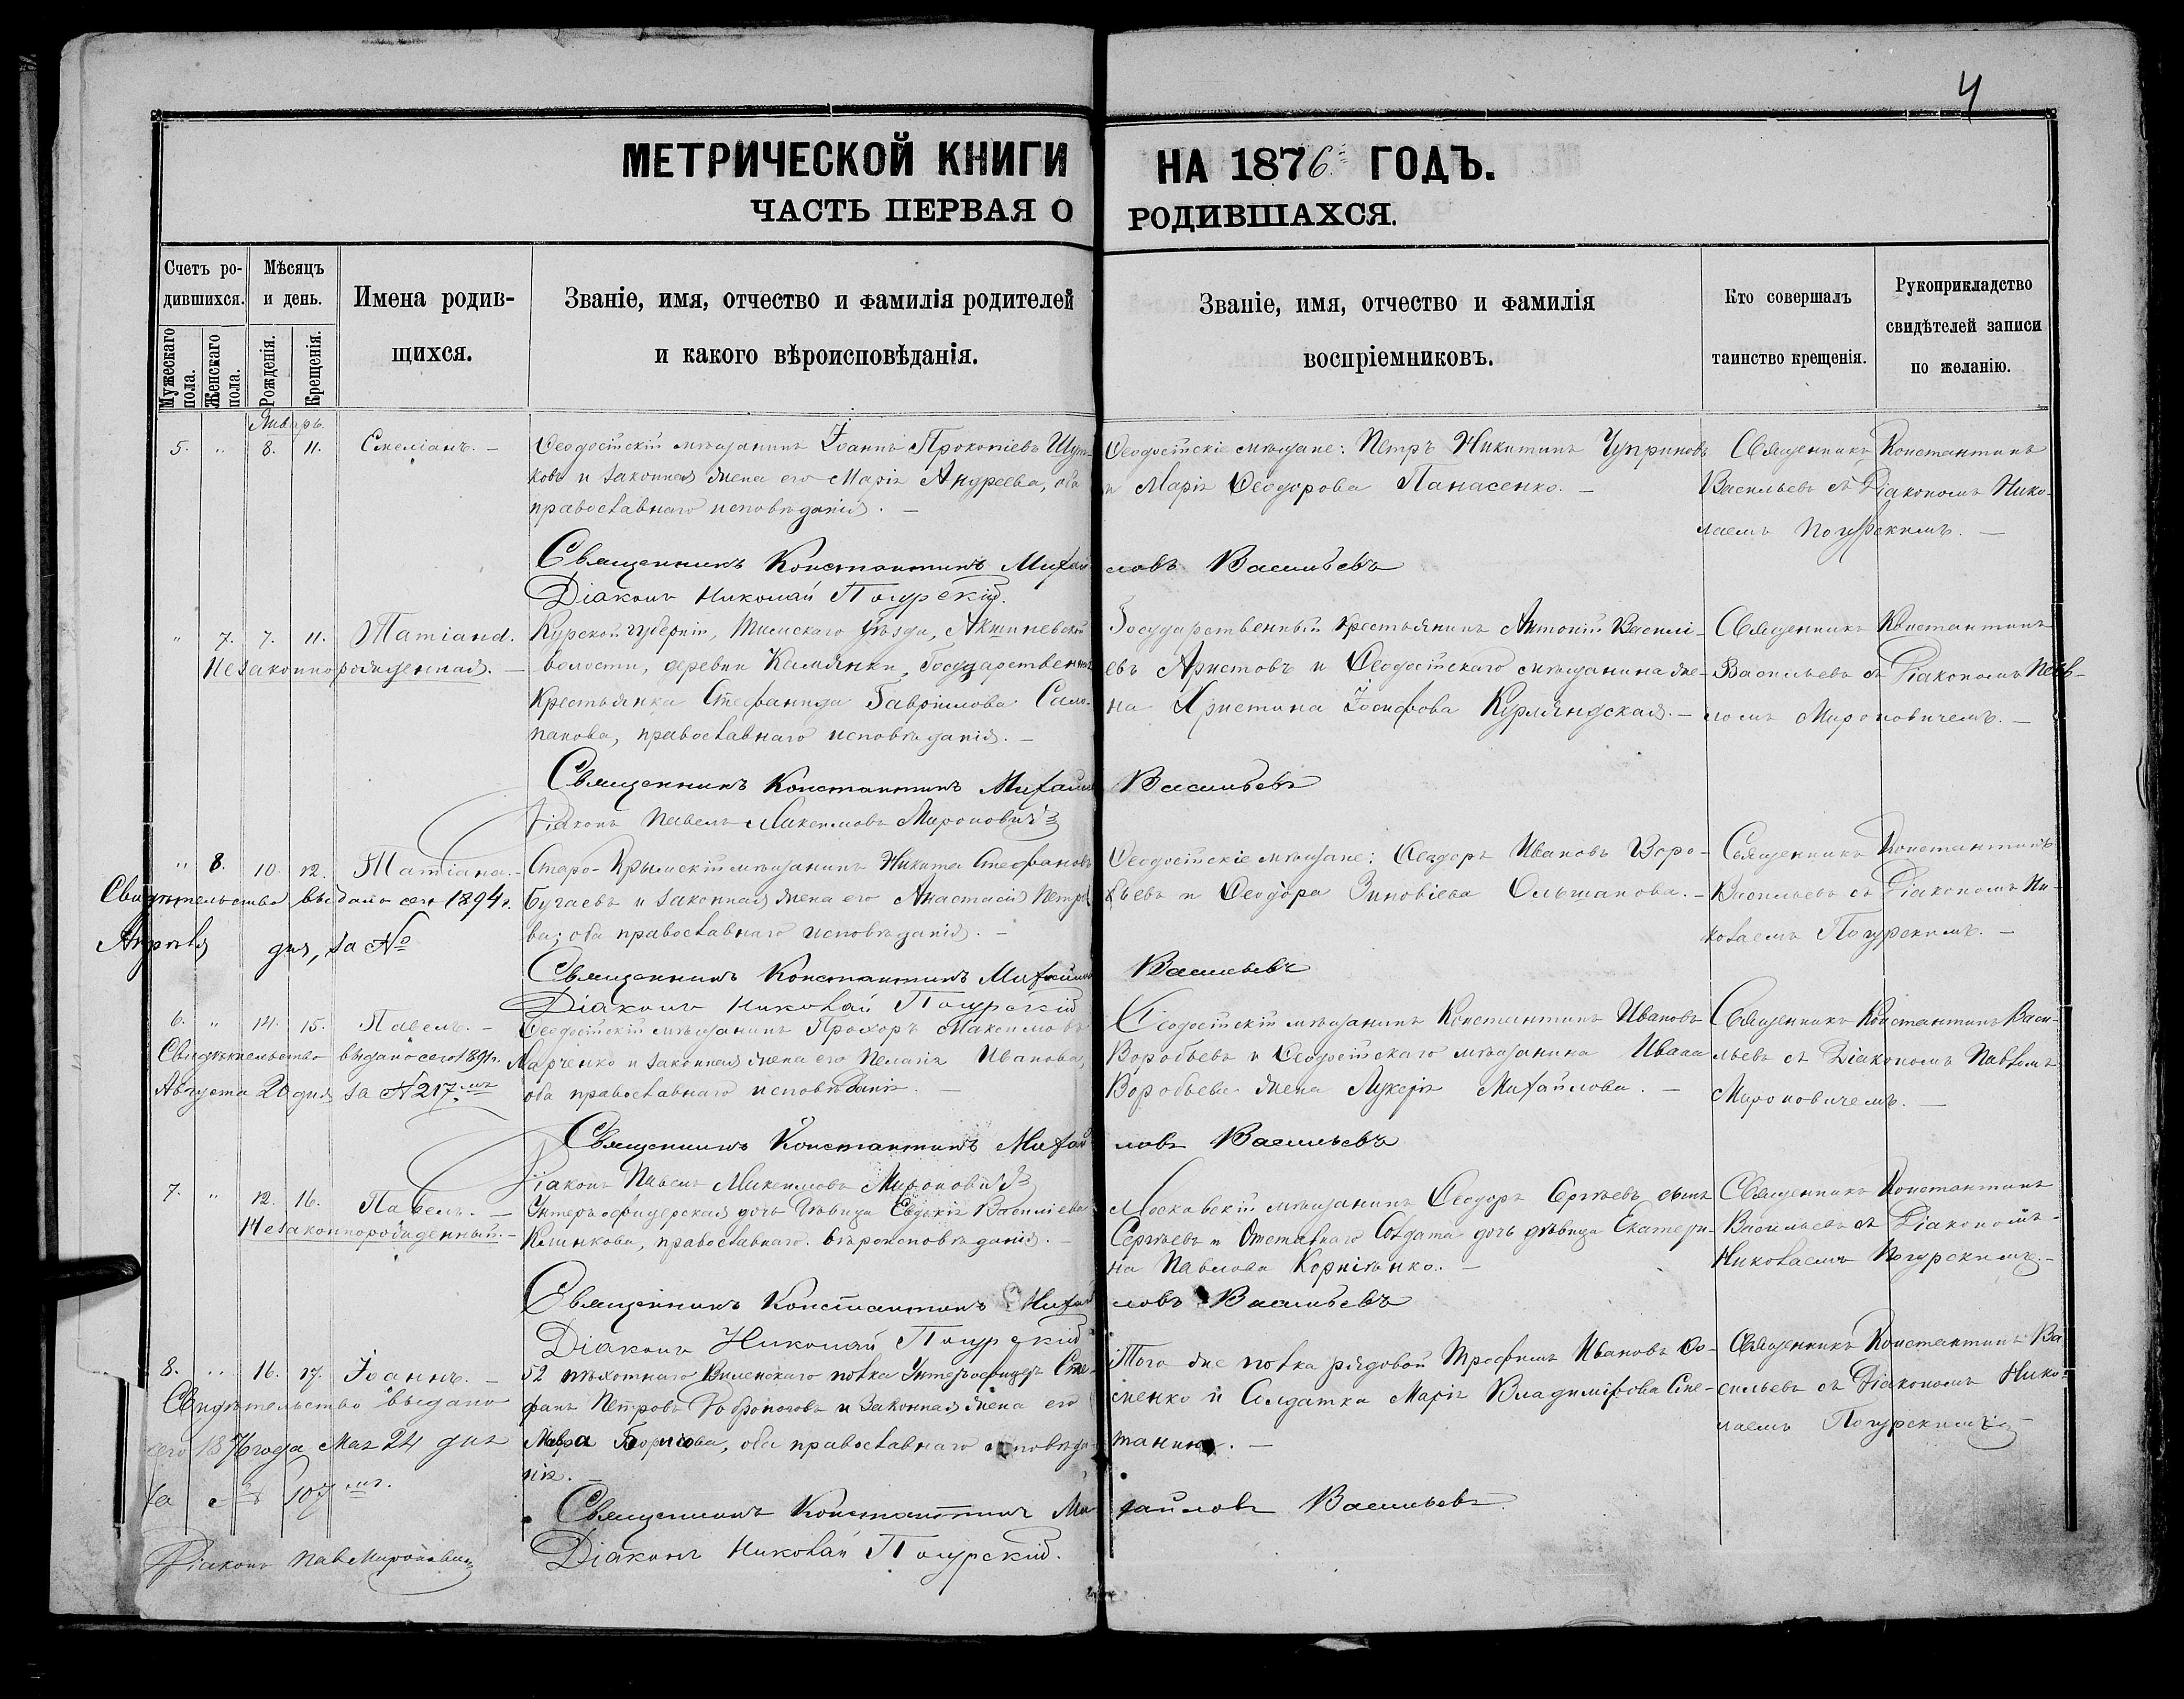 4
МЕТРИЧЕСКОЙ КНИГИ НА 1876 ГОДЪ.
ЧАСТЬ ПЕРВАЯ О РОДИВШАХСЯ.
Счетъ родившихся.
Мужескаго пола.
Женскаго пола.
Мѣсяцъ и день.
Рожденія.
Крещенія.
Имена родившихся.
Званіе, имя, отчество и фамилія родителей
и какого вѣроисповѣданія.
Званіе, имя, отчество и фамилія
воспріемниковъ.
Кто совершалъ
таинство крещенія.
Рукоприкладство
свидѣтелей записи
по желанію.
Январь.
5. " 8. 11.
Ѳеодосійскій мѣщанинъ Іоаннъ Прокопіевъ
ковъ и законная жена его Марія Андреева, оба
православнаго исповѣданія. —
Ѳеодосійскіе мѣщане: Петръ Никитинъ Чуприновъ
и Марія Ѳеодорова Панасенко. —
Священникъ Константинъ
Васильевъ съ Діакономъ Нико-
лаемъ Погурскимъ. —
Священникъ Константинъ Михайловъ Васильевъ
Діаконъ Николай Погурскій.
" 7. 7. 11. Татіана.
Незаконнорожденная. —
Курской губерніи, Тимскаго уѣзда,
волости, деревни Государственная
Крестьянка Стефанида Гавріилова
панова, православнаго исповѣданія. —
Государственный крестьянинъ Антоній Василі-
евъ Аристовъ и Ѳеодосійскаго мѣщанина же-
на Христина Іосифова Курляндская. —
Священникъ Константинъ
Васильевъ съ Діакономъ Пав-
ломъ Мироновичемъ. —
Священникъ Константинъ Михайловъ Васильевъ
Діаконъ Павелъ Мироновичъ
" 8. 10. 12. Татіана. —
Свидѣтельство выдано сего 1894 г.
Апрѣля дня, за №
Старо-Крымскій мѣщанинъ Никита Стефановъ
Бугаевъ и законная жена его Анастасія Петро-
ва; оба православнаго исповѣданія. —
Ѳеодосійскіе мѣщане: Ѳеодоръ Ивановъ Воро-
бьевъ и Ѳеодора Зиновіева Ольшанова. —
Священникъ Константинъ
Васильевъ съ Діакономъ Ни-
колаемъ Погурскимъ. —
Священникъ Константинъ Михайловъ Васильевъ
Діаконъ Николай Погурскій
6. " 14. 15. Павелъ. —
Свидѣтельство выдано сего 1891 г.
Августа 20 дня за № 217.
Ѳеодосійскій мѣщанинъ Прохоръ Максимовъ
Марченко и законная жена его Пелагія Иванова,
оба православнаго исповѣданія. —
Ѳеодосійскій мѣщанинъ Константинъ Ивановъ
Воробьевъ и Ѳеодосійскаго мѣщанина Ивана
Воробьева жена Лукерія Михайлова. —
Священникъ Константинъ Васи-
льевъ съ Діакономъ Павломъ
Мироновичемъ. —
Священникъ Константинъ Михайловъ Васильевъ
Діаконъ Павелъ Мироновичъ
7. " 12. 16. Павелъ. —
Незаконнорожденный. —
Унтеръ-офицерская дочь дѣвица Евдокія Василіева
Климкова, православнаго вѣроисповѣданія. —
Московскій мѣщанинъ Ѳеодоръ Сергѣевъ сынъ
Сергѣевъ и Отставнаго Солдата дочь дѣвица Екатери-
на Павлова Корніенко. —
Священникъ Константинъ
Васильевъ съ Діакономъ
Николаемъ Погурскимъ. —
Священникъ Константинъ Михайловъ Васильевъ
Діаконъ Николай Погурскій
8. " 16. 17. Іоаннъ. —
Свидѣтельство выдано
сего 1876 года Мая 24 дня
за № 107.
Діаконъ Пав Мироновичъ
52 пѣхотнаго Виленскаго полка Унтеръ-офицеръ Сте-
фанъ Петровъ и Законная жена его
Мавра Борисова, оба православнаго исповѣда-
нія. —
Того же полка рядовой Трофимъ Ивановъ Ѳо-
менко и Солдатка Марія Владимірова Сте-
Священникъ Константинъ Ва-
сильевъ съ Діакономъ Нико-
лаемъ Погурскимъ. —
Священникъ Константинъ Михайловъ Васильевъ.
Діаконъ Николай Погурскій.